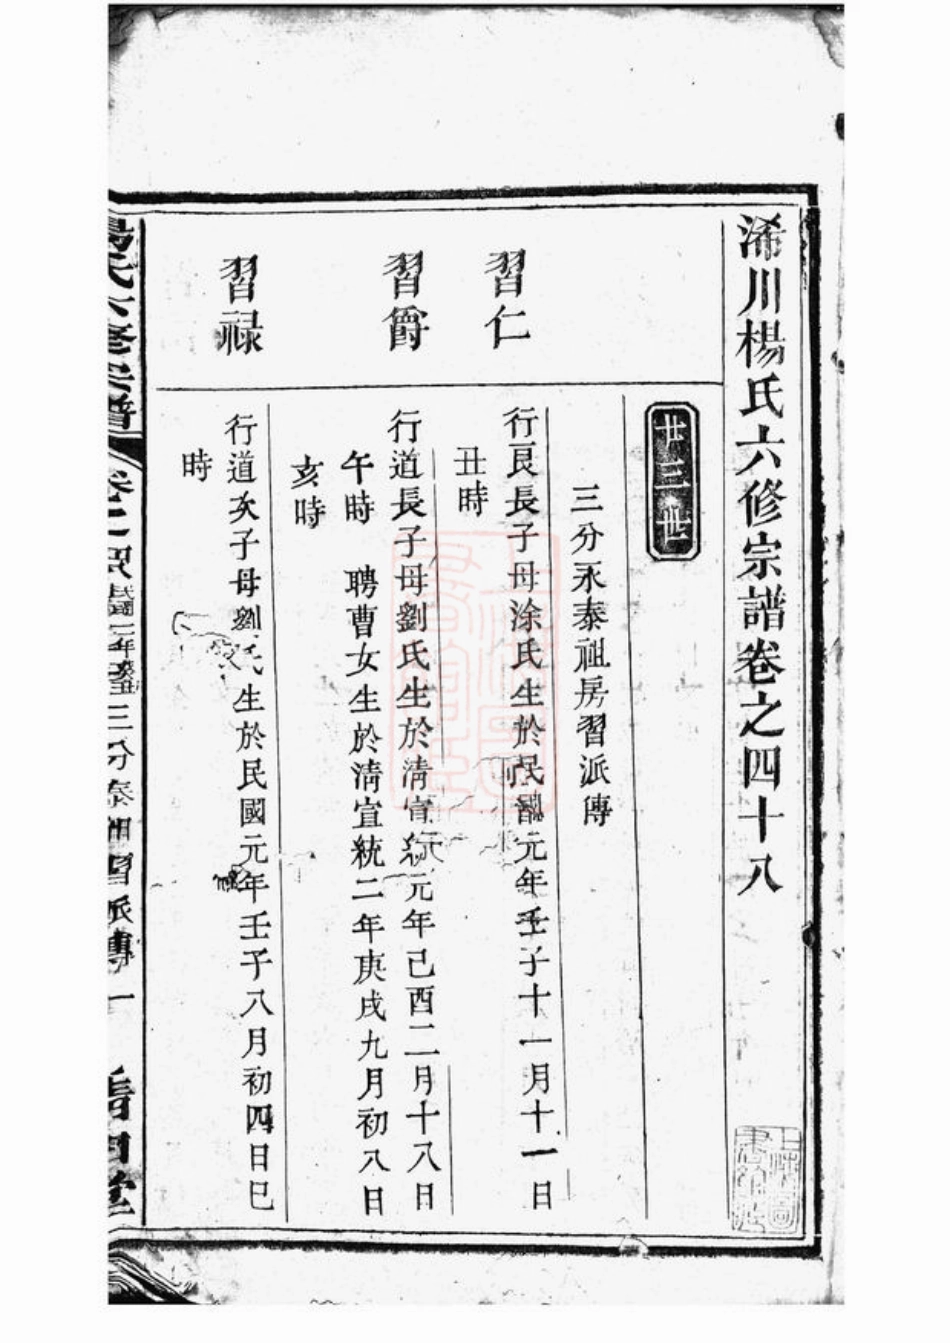 浠川楊氏六修宗譜卷之四十八
廿三世
三分永泰祖房習派傳
習仁
行良長子母涂氏生於民國元年壬子十一月十一日
丑時
習爵
行道長子母劉氏生於清宣統元年己酉二月十八日
午時 聘曹女生於清宣統二年庚戌九月初八日
亥時
習祿
行道次子母劉氏生於民國元年壬子八月初四日巳
時
楊氏六修宗譜
三分泰祖習派傳 一